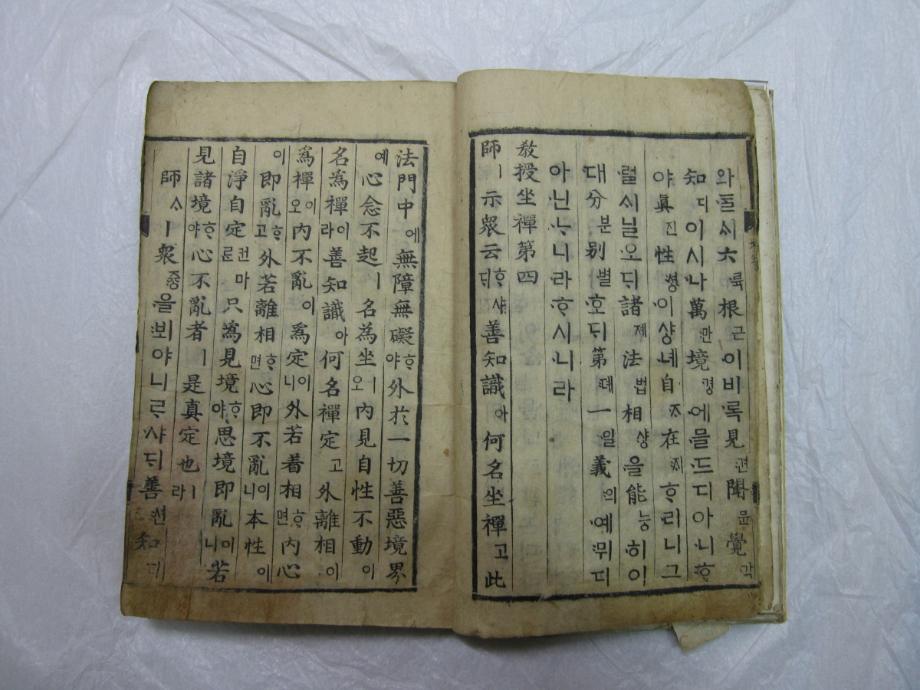 와ᄃᆞᆯᄉᆡ六륙根근이비록見견聞문覺각
知디이시나萬만境경에믈드디아니ᄒᆞ
야眞진性셩이샹녜自ᄌᆞ在ᄌᆡᄒᆞ리니그
럴ᄉᆡ닐오ᄃᆡ諸제法법相샹을能능히이
대分분別별호ᄃᆡ第뎨一일義의예뮈디
아닌ᄂᆞ니라ᄒᆞ시니라
敎授坐禪第四
師ㅣ示衆云ᄒᆞ샤ᄃᆡ善知識아何名坐禪고此
法門中에無障無礙ᄒᆞ야外於一切善惡境界
예心念不起ㅣ名為坐ㅣ오內見自性不動이
名為禪이라善知識아何名禪定고外離相이
為禪이오內不亂이為定이니外若着相ᄒᆞ면內心
이即亂ᄒᆞ고外若離相ᄒᆞ면心即不亂이니本性이
自淨自定건마ᄅᆞᆫ只為見境ᄒᆞ야思境即亂이니若
見諸境ᄒᆞ야心不亂者ㅣ是真定也ㅣ라
師ᄉᆞㅣ衆즁을뵈야니ᄅᆞ샤ᄃᆡ善션知디